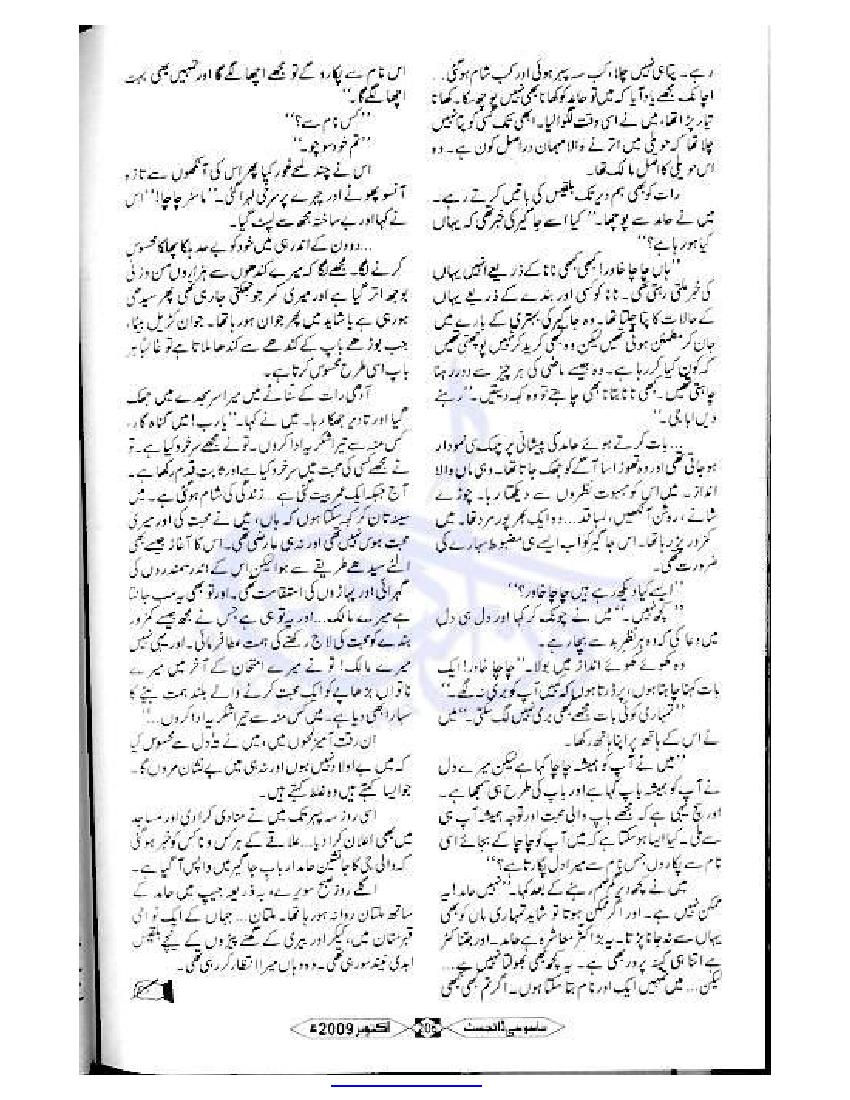 رہے۔ پتا ہی نہیں چلا، کب سہ پہر ہوئی اور کب شام ہوگئی...
اچانک مجھے یاد آیا کہ میں تو حامد کو کھانا بھی نہیں پوچھ سکا۔ کھانا
تیار پڑا تھا، میں نے اسی وقت لگوا لیا۔ ابھی تک کسی کو پتا نہیں
چلا تھا کہ حویلی میں اترنے والا مہمان دراصل کون ہے۔ وہ
اس حویلی کا اصل مالک تھا۔
رات کو بھی ہم دیر تک بلقیس کی باتیں کرتے رہے۔
میں نے حامد سے پوچھا۔ ”کیا اسے جاگیر کی خبر تھی کہ یہاں
کیا ہو رہا ہے؟“
”ہاں چاچا خاور! کبھی کبھی نانا کے ذریعے انہیں یہاں
کی خبر ملتی رہتی تھی۔ نانا کو کسی اور بندے کے ذریعے یہاں
کے حالات کا پتا چلتا تھا۔ وہ جاگیر کی بہتری کے بارے میں
جان کر مطمئن ہوتی تھیں لیکن وہ بھی کرید کر نہیں پوچھتی تھیں
کہ کون کیا کر رہا ہے۔ وہ جیسے ماضی کی ہر چیز سے دور رہنا
چاہتی تھیں۔ کبھی نانا بتانا بھی چاہتے تو وہ کہہ دیتیں۔ ”رہنے
دیں ابا جی۔“
... بات کرتے ہوئے حامد کی پیشانی پر چمک سی نمودار
ہو جاتی تھی اور وہ تھوڑا سا آگے کو جھک جاتا تھا۔ وہی ماں والا
انداز۔ میں اس کو مبہوت نظروں سے دیکھتا رہا۔ چوڑے
شانے، روشن آنکھیں، لمبا قد... وہ ایک بھرپور مرد تھا۔ میں
کمزور پڑ رہا تھا۔ اس جاگیر کو اب ایسے ہی مضبوط سہارے کی
ضرورت تھی۔
”ایسے کیا دیکھ رہے ہیں چاچا خاور؟“
”کچھ نہیں۔“ میں نے چونک کر کہا اور دل ہی دل
میں دعا کی کہ وہ ہر نظرِ بد سے بچا رہے۔
وہ کھوئے کھوئے انداز میں بولا۔ ”چاچا خاور! ایک
بات کہنا چاہتا ہوں، پر ڈرتا ہوں کہ کہیں آپ کو بری نہ لگے۔“
”تمہاری کوئی بات مجھے کبھی بری نہیں لگ سکتی۔“ میں
نے اس کے ہاتھ پر اپنا ہاتھ رکھا۔
”میں نے آپ کو ہمیشہ چاچا کہا ہے لیکن میرے دل
نے آپ کو ہمیشہ باپ کہا ہے اور باپ کی طرح ہی سمجھا ہے۔
اور سچ یہی ہے کہ مجھے باپ والی محبت اور توجہ ہمیشہ آپ ہی
سے ملی۔ کیا ایسا ہو سکتا ہے کہ میں آپ کو چاچا کے بجائے اسی
نام سے پکاروں جس نام سے میرا دل پکارتا ہے؟“
میں نے کچھ دیر گم صم رہنے کے بعد کہا۔ ”نہیں حامد! یہ
ممکن نہیں ہے۔ اور اگر ممکن ہوتا تو شاید تمہاری ماں کو بھی
یہاں سے نہ جانا پڑتا۔ یہ بڑا کٹر معاشرہ ہے حامد۔ اور جتنا کٹر
ہے اتنا ہی کینہ پرور بھی ہے۔ یہ کچھ بھی بھولتا نہیں ہے...
لیکن... میں تمہیں ایک اور نام بتا سکتا ہوں۔ اگر تم کبھی کبھی
اس نام سے پکارو گے تو مجھے اچھا لگے گا اور تمہیں بھی بہت
اچھا لگے گا۔“
”کس نام سے؟“
”تم خود سوچو۔“
اس نے چند لمحے غور کیا پھر اس کی آنکھوں سے تازہ
آنسو پھوٹے اور چہرے پر سرخی لہرا گئی۔ ”ماسٹر چاچا!“ اس
نے کہا اور بے ساختہ مجھ سے لپٹ گیا۔
... دو دن کے اندر ہی میں خود کو بے حد ہلکا پھلکا محسوس
کرنے لگا۔ مجھے لگا کہ میرے کندھوں سے ہزاروں من وزنی
بوجھ اتر گیا ہے اور میری کمر جو جھکتی جا رہی تھی پھر سیدھی
ہو رہی ہے یا شاید میں پھر جوان ہو رہا تھا۔ جوان کڑیل بیٹا،
جب بوڑھے باپ کے کندھے سے کندھا ملاتا ہے تو غالباً ہر
باپ اسی طرح محسوس کرتا ہے۔
آدھی رات کے سناٹے میں میرا سر سجدے میں جھک
گیا اور تادیر جھکا رہا۔ میں نے کہا۔ ”یا رب! میں گناہ گار،
کس منہ سے تیرا شکریہ ادا کروں۔ تو نے مجھے سرخرو کیا ہے۔ تو
نے مجھے کسی کی محبت میں سرخرو کیا ہے اور ثابت قدم رکھا ہے۔
آج جبکہ ایک عمر بیت گئی ہے... زندگی کی شام ہو گئی ہے۔ میں
سینہ تان کر کہہ سکتا ہوں کہ ہاں، میں نے محبت کی اور میری
محبت ہوس نہیں تھی اور نہ ہی عارضی تھی۔ اس کا آغاز جیسے بھی
الٹے سیدھے طریقے سے ہوا لیکن اس کے اندر سمندروں کی
گہرائی اور پہاڑوں کی استقامت تھی۔ اور تو بھی یہ سب جانتا
ہے میرے مالک... اور یہ تو ہی ہے جس نے مجھ جیسے کمزور
بندے کو محبت کی لاج رکھنے کی ہمت عطا فرمائی۔ اور یہی نہیں
میرے مالک! تو نے میرے امتحان کے آخر میں میرے
ناتواں بڑھاپے کو ایک محبت کرنے والے بلند ہمت بیٹے کا
سہارا بھی دیا ہے۔ میں کس منہ سے تیرا شکریہ ادا کروں...“
ان رقت آمیز لمحوں میں، میں نے تہِ دل سے محسوس کیا
کہ میں بے اولاد نہیں ہوں اور نہ ہی میں بے نشان مروں گا۔
جو ایسا کہتے ہیں وہ غلط کہتے ہیں۔
اسی روز سہ پہر تک میں نے منادی کرا دی اور مساجد
میں بھی اعلان کرا دیا... علاقے کے ہر کس و ناکس کو خبر ہو گئی
کہ والی جی کا جانشین حامد ارباب جاگیر میں واپس آ گیا ہے۔
اگلے روز صبح سویرے میں بہ ذریعہ جیپ میں حامد کے
ساتھ ملتان روانہ ہو رہا تھا۔ ملتان... جہاں کے ایک نواحی
قبرستان میں، کیکر اور بیری کے گھنے پیڑوں کے نیچے بلقیس
ابدی نیند سو رہی تھی۔ وہ وہاں میرا انتظار کر رہی تھی۔
جاسوسی ڈائجسٹ 206 اکتوبر 2009ء